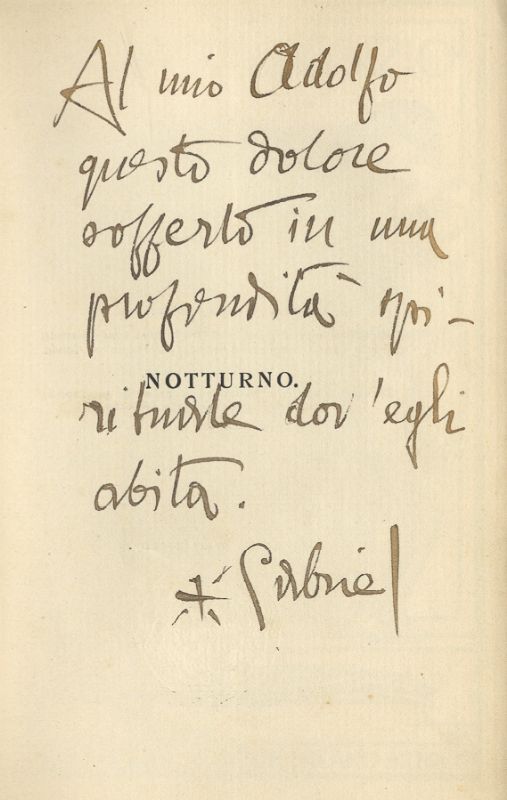 Al mio Adolfo
questo dolore
sofferto in una
profondità spi-
NOTTURNO.
rituale dov'egli
abita.
Gabriel